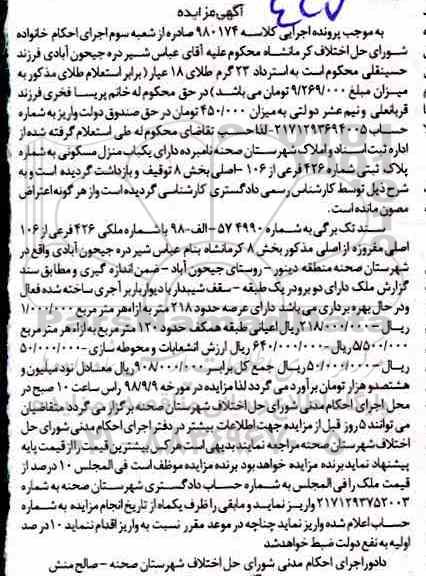 آگهی مزایده
به موجب پرونده اجرایی کلاسه ۹۸۰۱۷۴ صادره از شعبه سوم اجرای احکام خانواده
شورای حل اختلاف کرمانشاه محکوم علیه آقای عباس شیر دره جیحون آبادی فرزند
حسینقلی محکوم است به استرداد ۲۳ گرم طلای ۱۸ عیار ( برابر استعلام طلای مذکور به
میزان مبلغ ۹/۲۶۹/۰۰۰ تومان می باشد ) در حق محکوم له خانم پریسا فخری فرزند
قربانعلی و نیم عشر دولتی به میزان ۴۵۰/۰۰۰ تومان در حق صندوق دولت واریز به شماره
حساب ۲۱۷۱۲۹۳۶۹۴۰۰۵- لذا حسب تقاضای محکوم له طی استعلام گرفته شده از
اداره ثبت اسناد و املاک شهرستان صحنه نامبرده دارای یکباب منزل مسکونی به شماره
پلاک ثبتی شماره ۴۲۶ فرعی از ۱۰۶ -اصلی بخش ۸ توقیف و بازداشت گردیده است و به
شرح ذیل توسط کارشناس رسمی دادگستری کارشناسی گردیده است واز هر گونه اعتراض
مصون مانده است.
سند تک برگی به شماره ۴۹۹۰ ۵۷ -الف-۹۸ با شماره ملکی ۴۲۶ فرعی از ۱۰۶
اصلی مفروزه از اصلی مذکور بخش ۸ کرمانشاه بنام عباس شیر دره جیحون آبادی واقع در
شهرستان صحنه منطقه دینور - روستای جیحون آباد - ضمن اندازه گیری و مطابق سند
گزارش ملک دارای دو بر و در یک طبقه - سقف شیبدار با دیوار باربر آجری ساخته شده فعال
و در حال بهره برداری می باشد دارای عرصه حدود ۲۱۸ متر به ازاء هر متر مربع ۱/۰۰۰/۰۰۰
ریال - ۲۱۸/۰۰۰/۰۰۰ ریال اعیانی طبقه همکف حدود ۱۲۰ متر مربع به ازاء هر متر مربع
۵/۵۰۰/۰۰۰ ریال - ۶۴۰/۰۰۰/۰۰۰ ریال ارزش انشعابات و محوطه سازی - ۵۰/۰۰۰/۰۰۰
ریال - ۵۰/۰۰۰/۰۰۰ ریال جمع کل برابر ۹۰۸/۰۰۰/۰۰۰ ریال معادل نود میلیون و
هشتصد و هزار تومان برآورد می گردد لذا مزایده در مورخه ۹۸/۹/۹ راس ساعت ۱۰ صبح در
محل اجرای احکام مدنی شورای حل اختلاف شهرستان صحنه برگزار می گردد متقاضیان
می توانند ۵ روز قبل از مزایده جهت اطلاعات بیشتر در دفتر اجرای احکام مدنی شورای حل
اختلاف شهرستان صحنه مراجعه نمایند بدیهی است هر کس بیشترین قیمت را از قیمت پایه
پیشنهاد نماید برنده مزایده خواهد بود برنده مزایده موظف است فی المجلس ۱۰ درصد از
قیمت ملک را فی المجلس به شماره حساب دادگستری شهرستان صحنه به شماره
۲۱۷۱۲۹۳۷۵۲۰۰۳ واریز نماید و مابقی را ظرف یکماه از تاریخ انجام مزایده به شماره
حساب اعلام شده واریز نماید چناچه در موعد مقرر نسبت به واریز اقدام ننماید ۱۰ در صد
اولیه به نفع دولت ضبط خواهد شد
دادورز اجرای احکام مدنی شورای حل اختلاف شهرستان صحنه - صالح منش